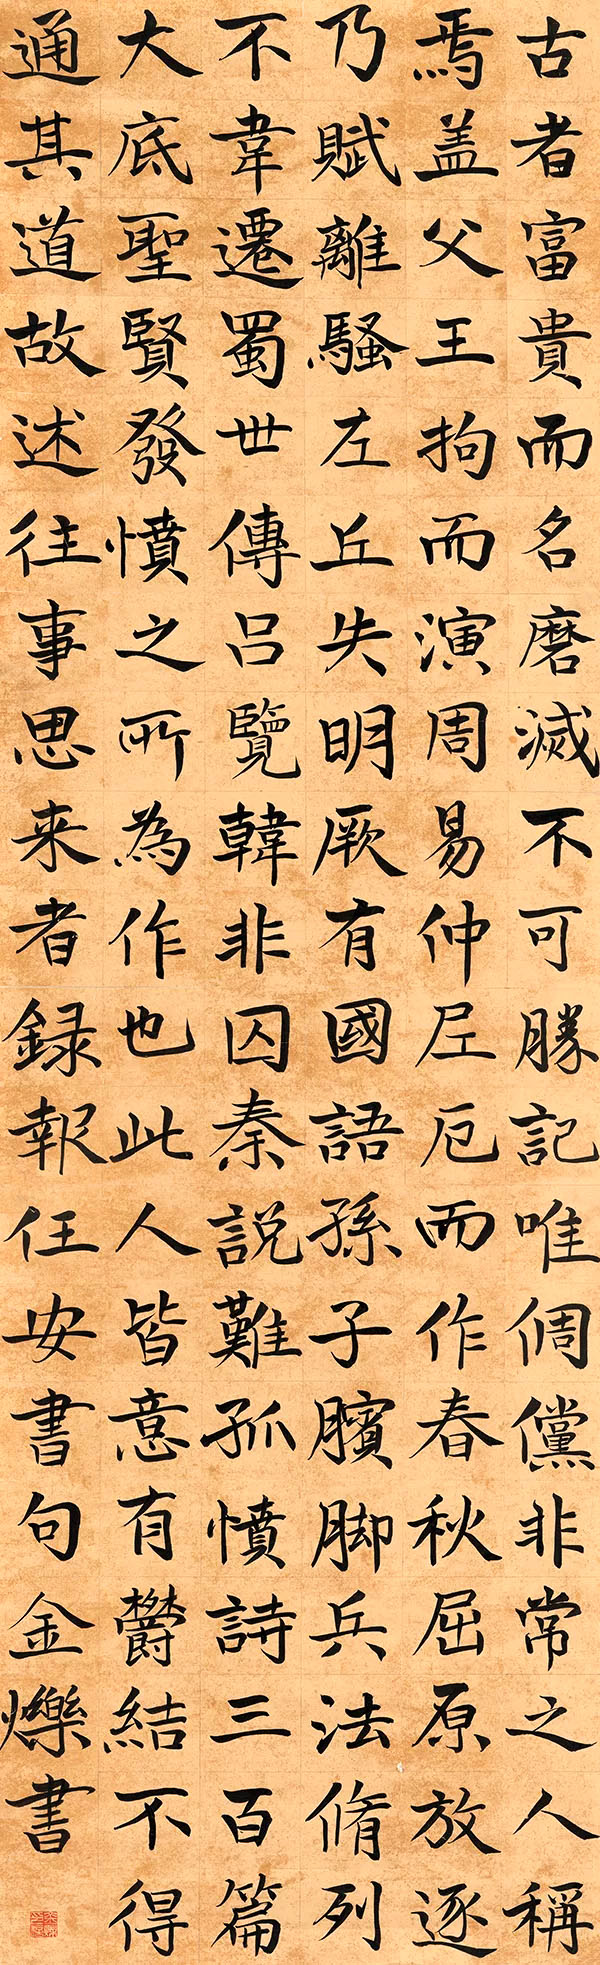 古者富貴而名磨滅不可勝記唯倜儻非常之人稱
焉盖父王拘而演周易仲尼厄而作春秋屈原放逐
乃賦離騷左丘失明厥有國語孫子臏脚兵法脩列
不韋遷蜀世傳吕覽韓非囚秦説難孤憤詩三百篇
大底聖賢發憤之所為作也此人皆意有欝結不得
通其道故述往事思来者録報任安書句金爍書